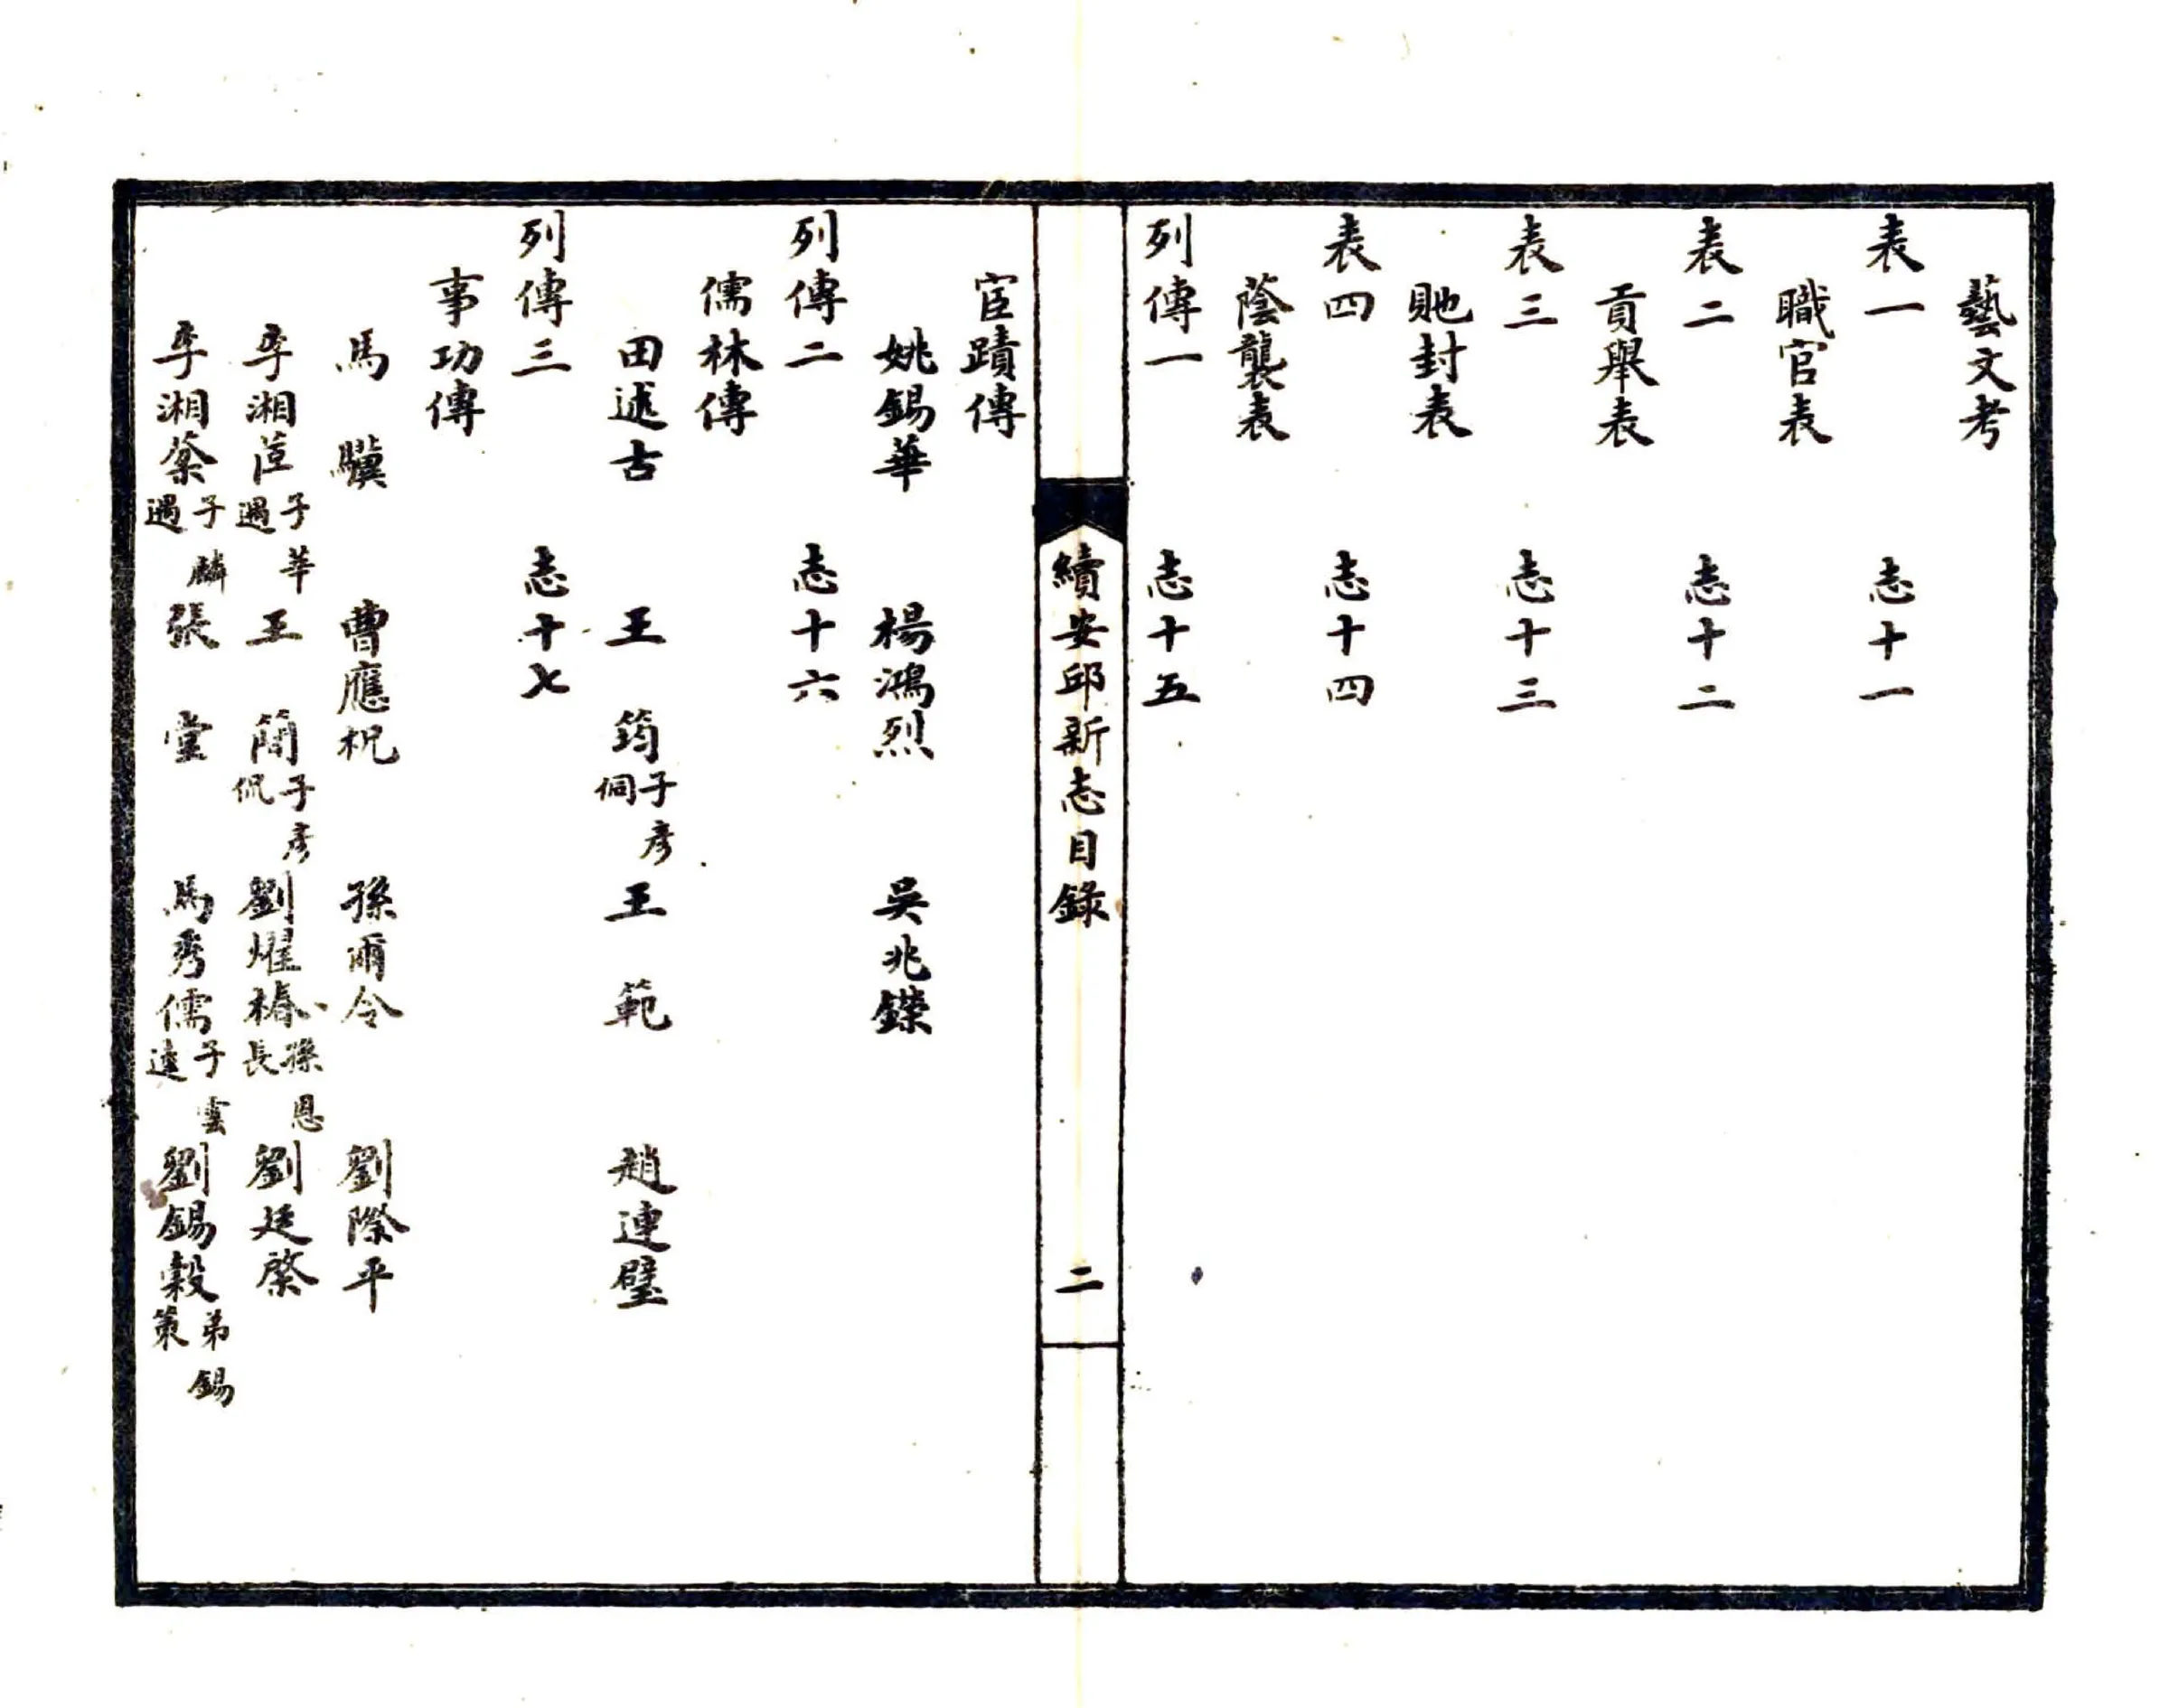 藝文考
表一 志十一
職官表
表二 志十二
貢舉表
表三 志十三
貤封表
表四 志十四
蔭襲表
列傳一 志十五
續安邱新志目錄 二
宦蹟傳
姚錫華 楊鴻烈 吳兆鑅
列傳二 志十六
儒林傳
田述古 王筠子彥侗 王範 趙連璧
列傳三 志十七
事功傳
馬驥 曹應柷 孫爾令 劉際平
李湘茝子華遇 王簡子彥侃 劉燿椿孫恩長 劉廷棨
李湘棻子麟遇 張堂 馬秀儒子雲逵 劉錫穀弟錫策